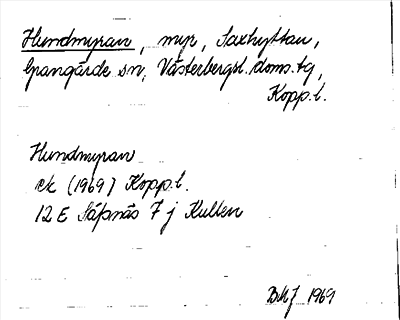 Hundmyran, myr, Saxhyttan,
Grangärde sn, Västerbergsl. doms.tg,
Kopp.l.
Hundmyran
ek (1969) Kopp.l.
12 E Säfsnäs 7 j Kullen
1969